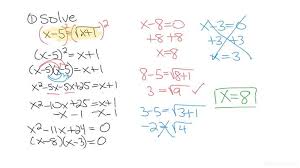 ① Solve
(x-5)² = (√x+1)²
(x-5)² = x+1
(x-5)(x-5) = x+1
x²-5x-5x+25 = x+1
x²-10x+25 = x+1
x²-11x+24 = 0
(x-8)(x-3) = 0
x-8=0
+8 +8
x=8
8-5=√8+1
3=√9 ✓
3-5=√3+1
-2=√4
x-3=0
+3 +3
x=3
x=8